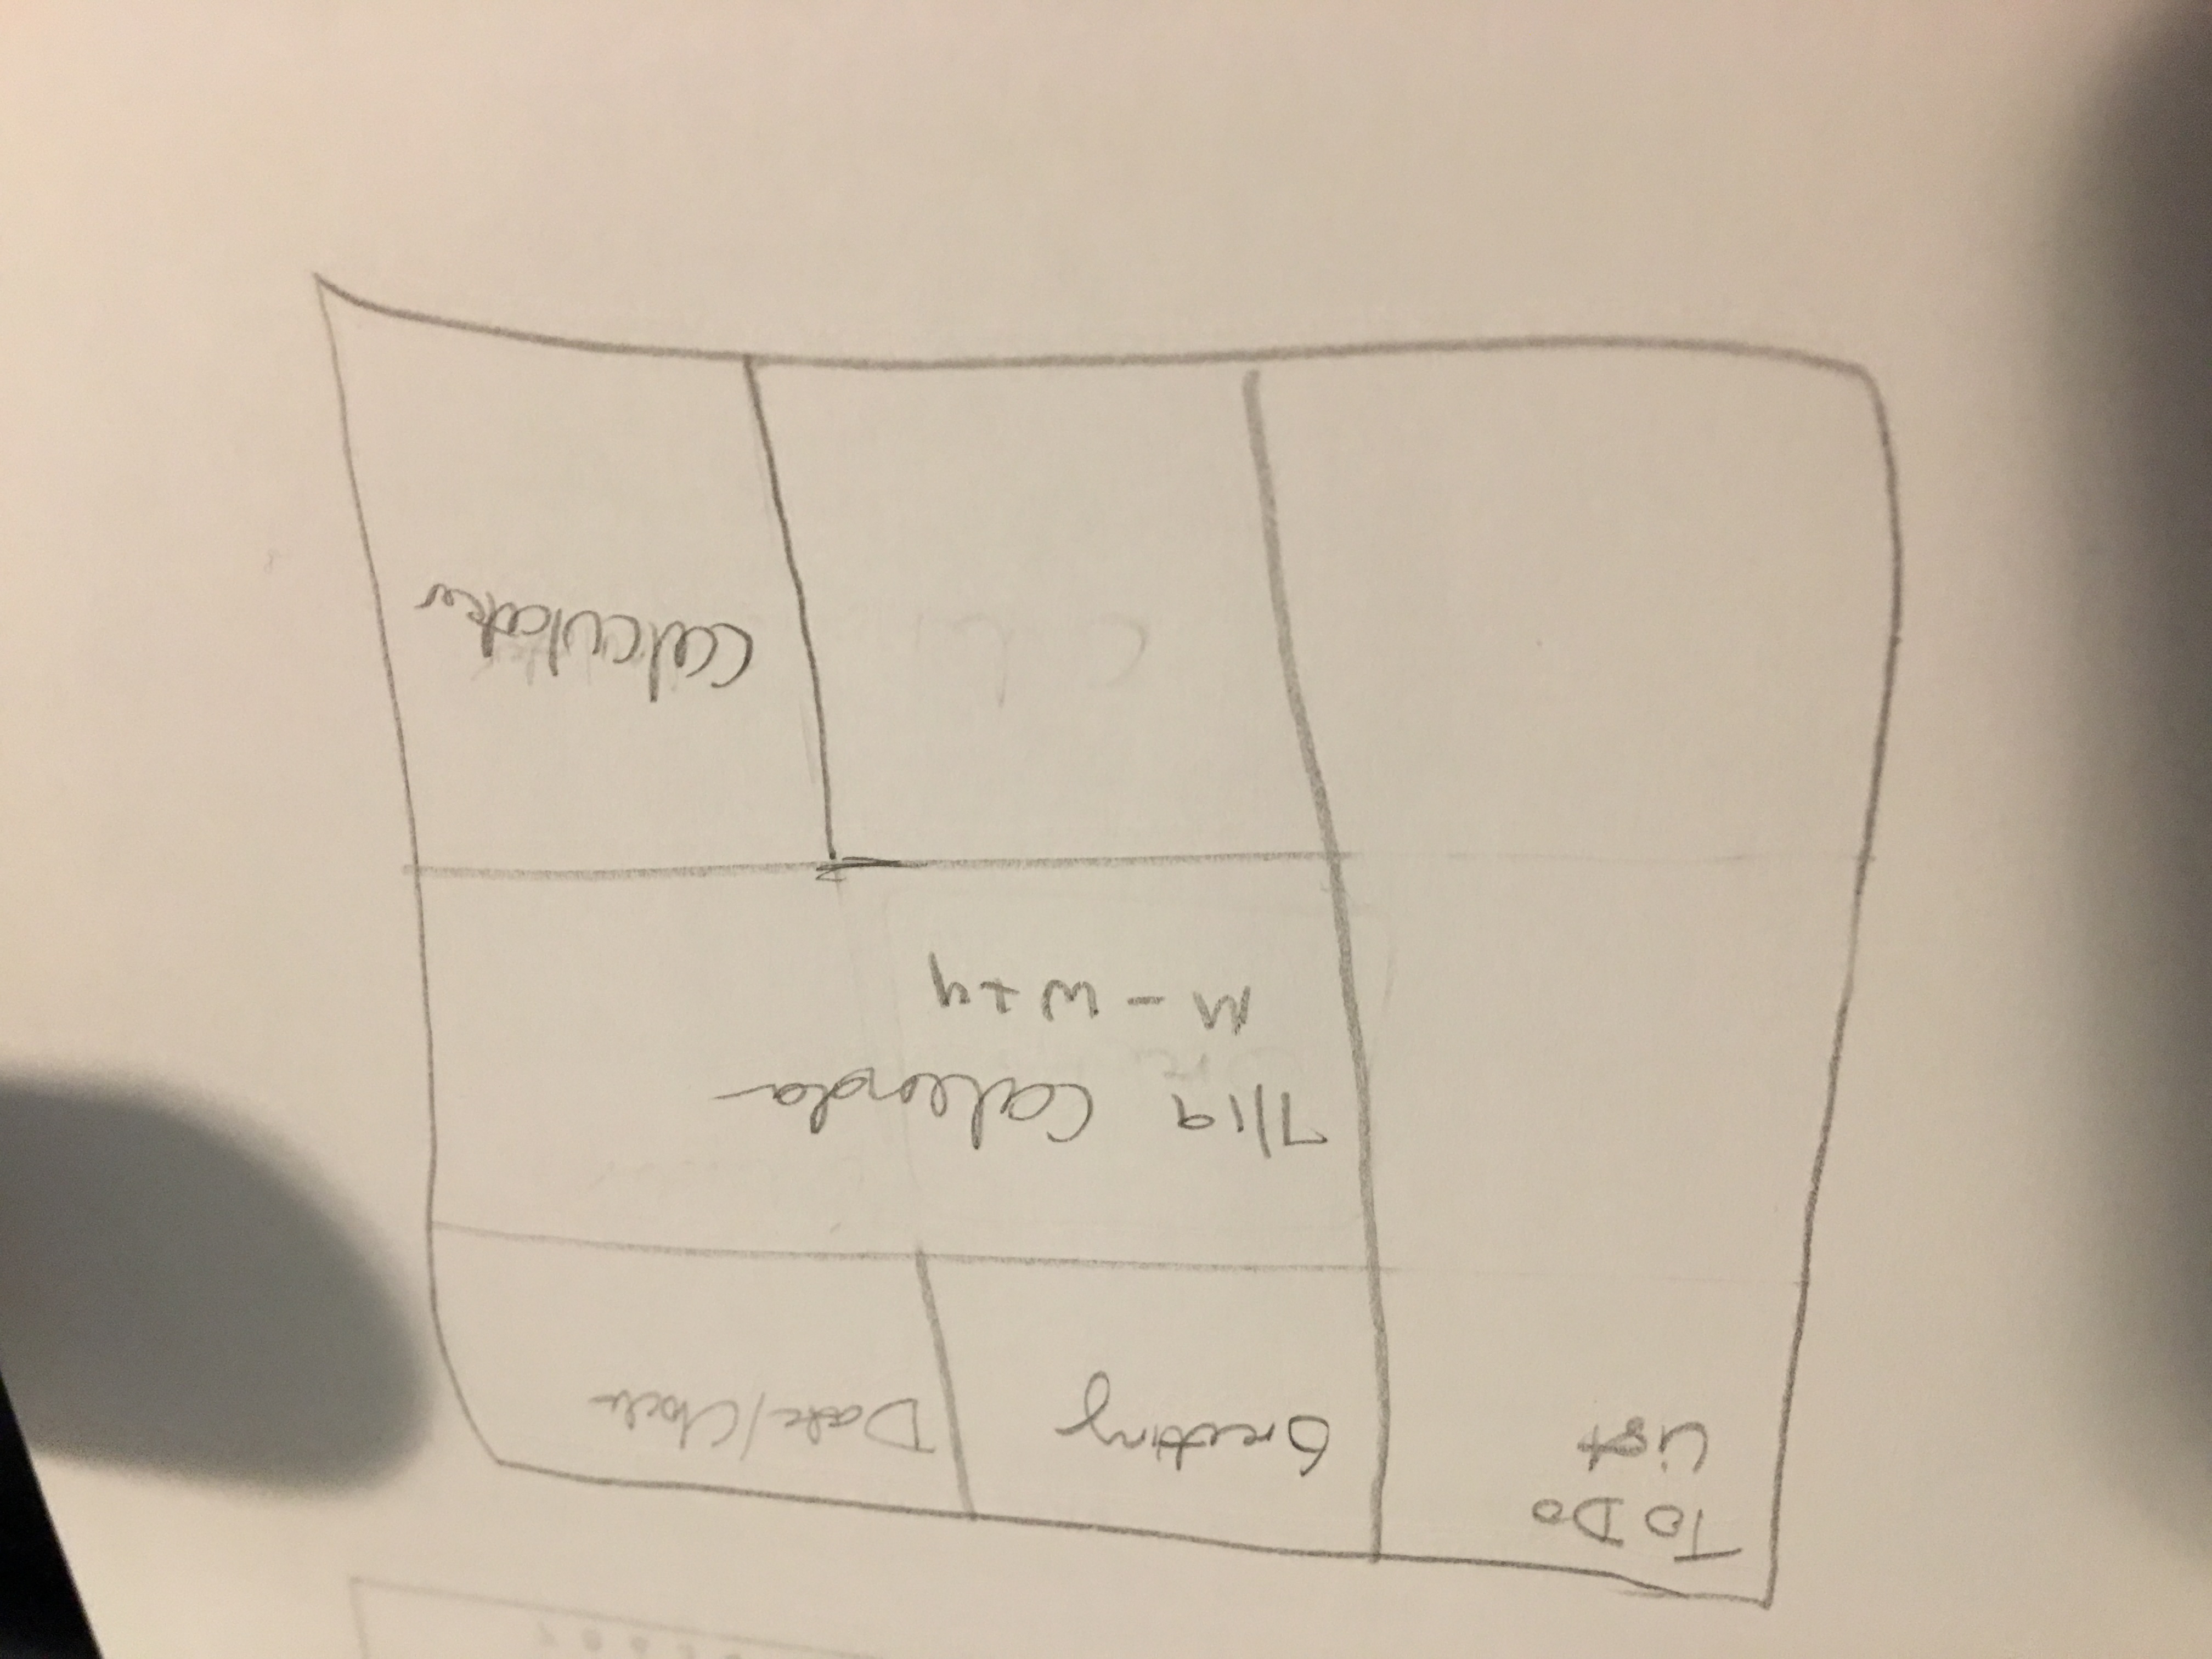 To Do
List
Greeting
Date/Clock
7/19 Calendar
M - W
Calculator